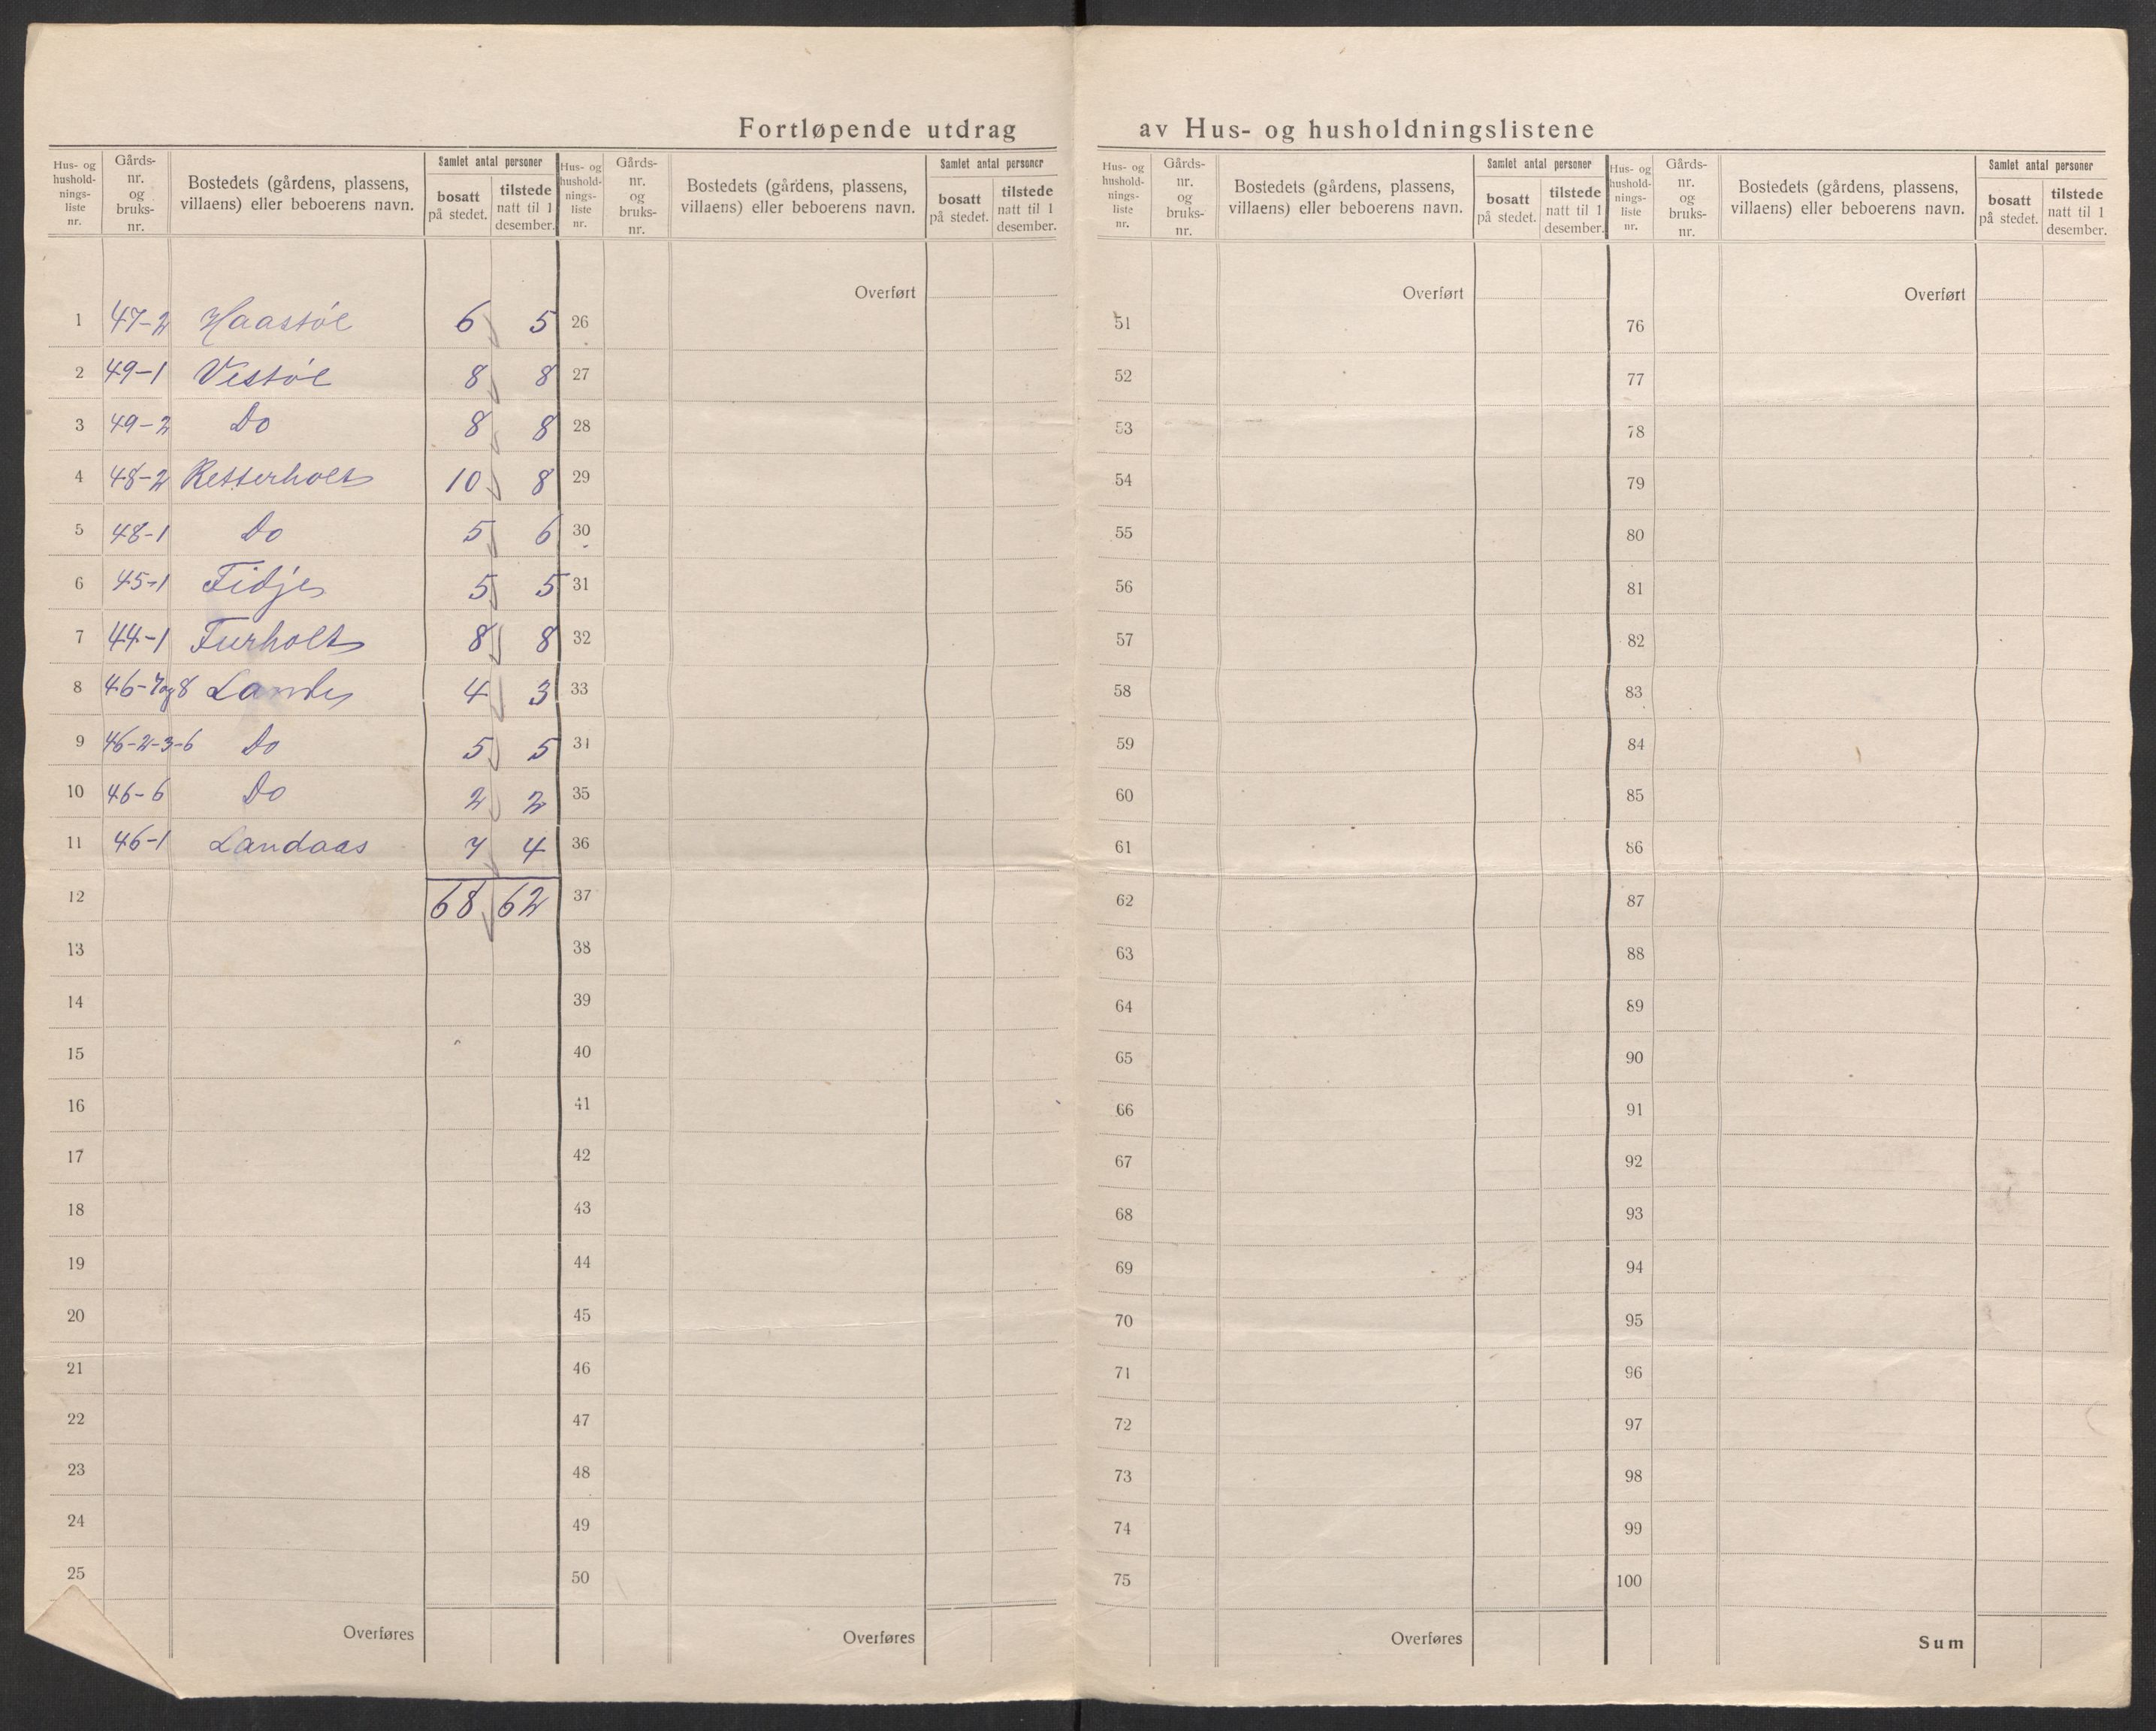 Fortløpende utdrag av Hus- og husholdningslistene
Hus- og hushold-nings-liste nr. | Gårds-nr. og bruks-nr. | Bostedets (gårdens, plassens, villaens) eller beboerens navn. | Samlet antal personer | bosatt på stedet. | tilstede natt til 1 desember.
1 47-2 Haastøl 6 5
2 49-1 Vestøl 8 8
3 49-2 Do 8 8
4 48-2 Retterholt 10 8
5 48-1 Do 5 6
6 45-1 Tidje 5 5
7 44-1 Furholt 8 8
8 46-7og8 Lande 4 3
9 46-2-3-6 Do 5 5
10 46-6 Do 2 2
11 46-1 Landaas 7 4
12 68 62
13
14
15
16
17
18
19
20
21
22
23
24
25
Overføres
Hus- og hushold-nings-liste nr. | Gårds-nr. og bruks-nr. | Bostedets (gårdens, plassens, villaens) eller beboerens navn. | Samlet antal personer | bosatt på stedet. | tilstede natt til 1 desember.
Overført
26
27
28
29
30
31
32
33
34
35
36
37
38
39
40
41
42
43
44
45
46
47
48
49
50
Overføres
Hus- og hushold-nings-liste nr. | Gårds-nr. og bruks-nr. | Bostedets (gårdens, plassens, villaens) eller beboerens navn. | Samlet antal personer | bosatt på stedet. | tilstede natt til 1 desember.
Overført
51
52
53
54
55
56
57
58
59
60
61
62
63
64
65
66
67
68
69
70
71
72
73
74
75
Overføres
Hus- og hushold-nings-liste nr. | Gårds-nr. og bruks-nr. | Bostedets (gårdens, plassens, villaens) eller beboerens navn. | Samlet antal personer | bosatt på stedet. | tilstede natt til 1 desember.
Overført
76
77
78
79
80
81
82
83
84
85
86
87
88
89
90
91
92
93
94
95
96
97
98
99
100
Sum